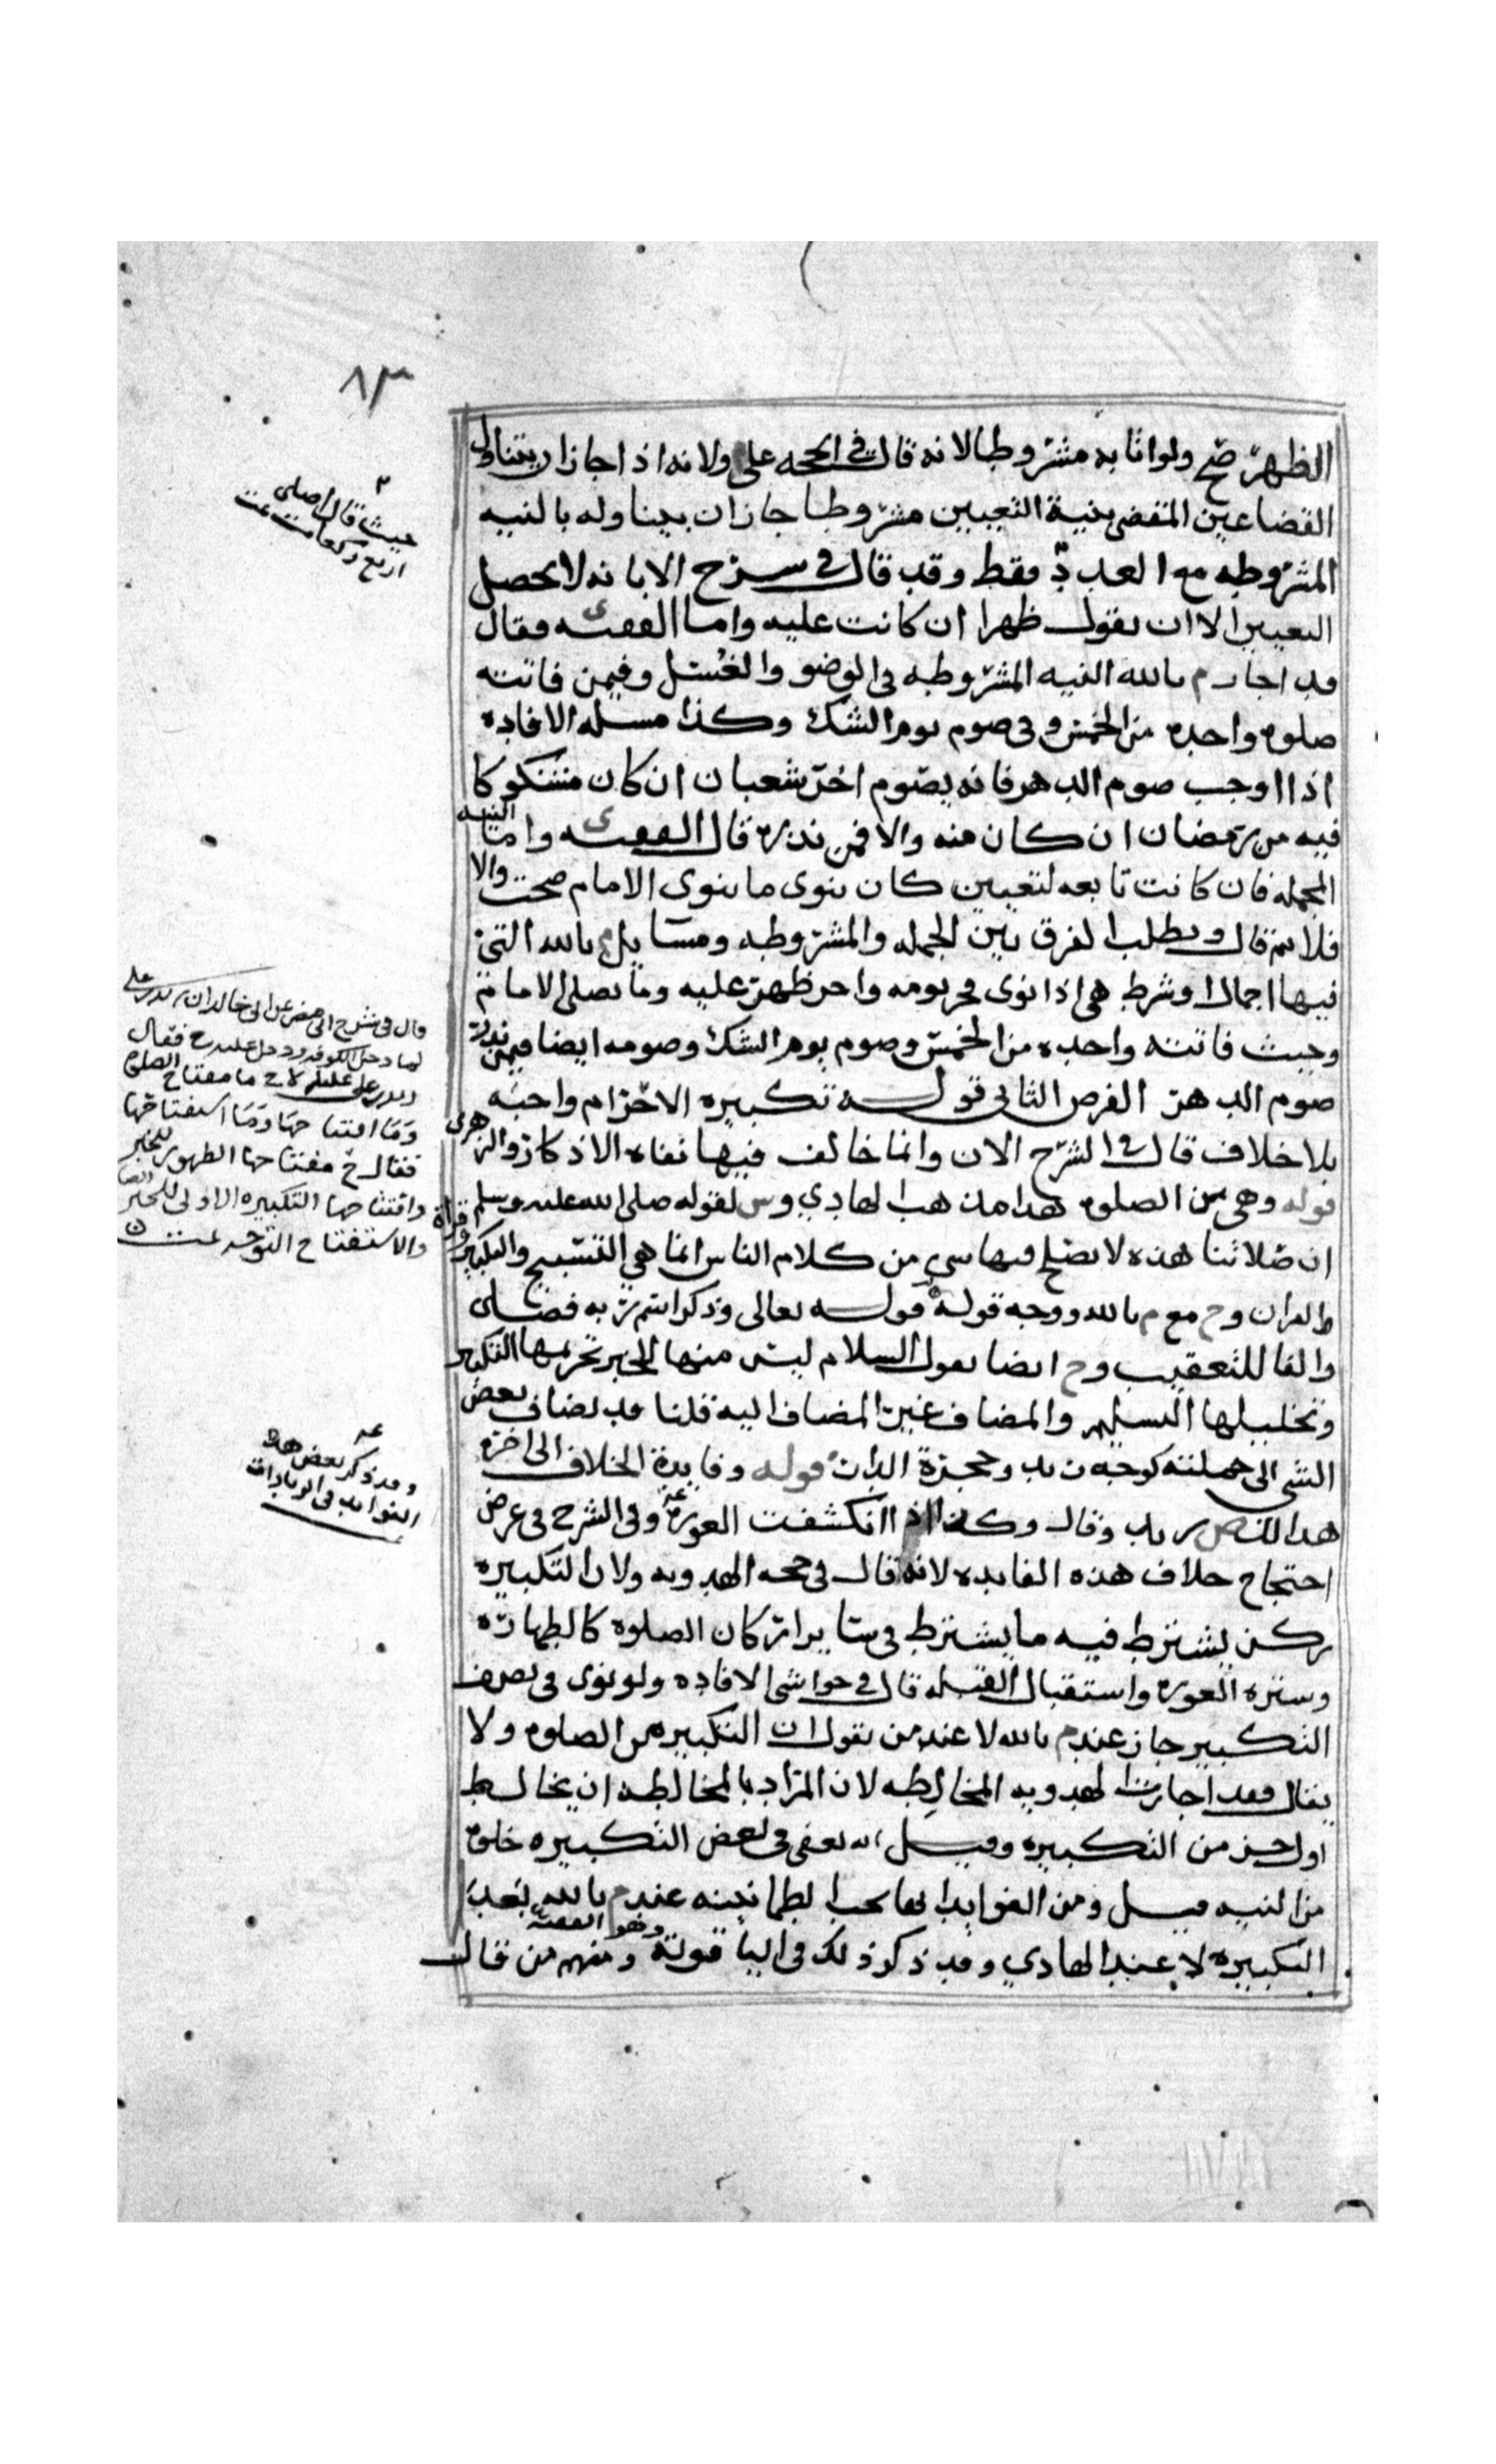 ٨٣
الظهر صح ولو اتا به مشروطا لانه قال في الححه على ولانه اذا جاز ان يتناول
القضا عين المقضى بنية التعيين مشروطا جاز ان يتناوله بالنيه
المشروطه مع العدد فقط وقد قال في سرح الابانه لا يحصل
التعيين الا ان يقول ظهرا ان كانت عليه واما الفقيه ى فقال
قد اجاز م بالله النيه المشروطه في الوضو والغسل وفيمن فاتته
صلوه واحده من الخمس وفي صوم يوم الشك وكذا مسله الافاده
اذا اوجب صوم الدهر فانه يصوم اخر شعبان ان كان مشكوكا
فيه من رمضان ان كان منه والا فمن نذره قال الفقيه ى واما النيه
المجمله فان كانت تابعه لتعيين كان ينوى ما ينوى الامام صحت والا
فلا ثم قال ويطلب الفرق بين المجمله والمشروطه ومسايل م بالله التي
فيها اجمال او شرط هي اذا نوى فجر يومه واخر ظهر عليه وما يصلى الامام
وحيث فاتته واحده من الخمس وصوم يوم الشك وصومه ايضا فيمن نذر
صوم الدهر الفرض الثاني قوله تكبيره الاحرام واجبه
بلا خلاف قال في الشرح الان وانما خالف فيها نفاه الاذكار والزهرى
قوله وهي من الصلوه هذا مذهب الهادي وس لقوله صلى الله عليه وسلم
ان صلاتنا هذه لا يصلح فيها سي من كلام الناس انما هي التسبيح والتكبير وقراة
القران وح مع م بالله ووجه قوله قوله تعالى وذكر اسم ربه فصلى
والفا للتعقيب وح ايضا يقول السلام ليس منها للخبر تحريمها التكبير
وتحليلها التسليم والمضاف غير المضاف اليه قلنا قد يضاف بعض
الشي الى جملته كوجه زيد وحجرة الدار قوله وفايدة الخلاف الى اخره
وقال وكذا اذا انكشفت العوره وفي الشرح في عرض
احتجاج خلاف هذه الفايده لانه قال في حجه الهدويه ولان التكبيره
ركن يشترط فيه ما يشترط في ساير اركان الصلوه كالطهاره
وستره العوره واستقبال القبله قال في حواشي الافاده ولو نوى في نصف
التكبير جاز عند م بالله لا عند من يقول ان التكبيره من الصلوه ولا
يقال فقد اجازت الهدويه المخالطه لان المراد بالمخالطه ان يخالط
اول جز من التكبيره وقيل انه يعفى في بعض التكبيره خلوه
من النيه قيل ومن الفوايد انها يجب الطمانينه عند م بالله بعد
التكبيره لا عند الهادي وقد ذكر ذلك في البا قوله ومنهم من قال
وهو الفقيه
حيث قال اصلى
اربع ركعات تمت
لما دخل الكوفه ودخل عليه ح فقال
ما مفتاح الصلوه
وما افتتاحها وما استفتاحها
فقال ح مفتاحها الطهور للخبر
وافتتاحها التكبيره الاولى للخبر ايضا
والاستفتاح التوجه تمت
وقد ذكر بعض هذه
الفوايد في الزيادات